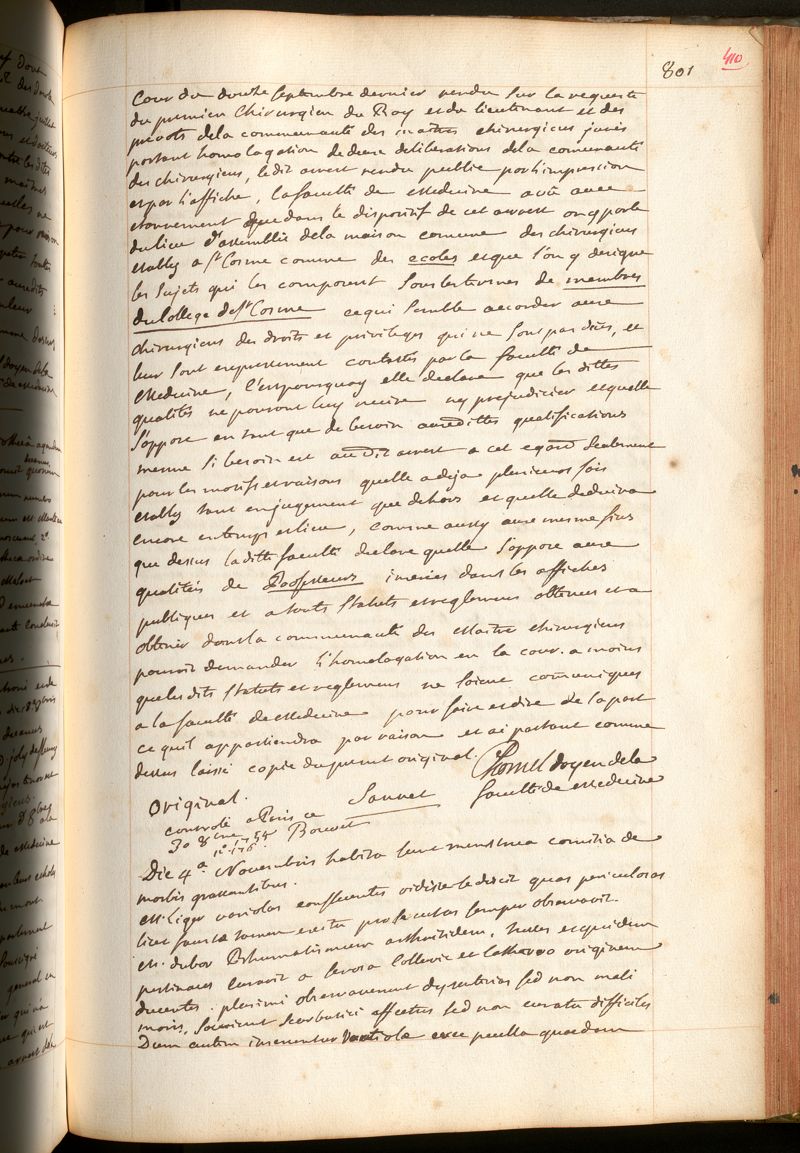 801
410
Cour du douze Septembre dernier rendu Sur la requeste
du premier Chirurgien du Roy et du lieutenant et des
prevots de la communauté des maitres chirurgiens jurés
portant homologation de deux deliberations de la comunauté
des chirurgiens, ledit arrest rendu public par l'impression
et par l'affiche, la faculté de Medecine a vû avec
etonnement que dans le dispositif de cet arrest on y parle
du lieu d'assemblée de la maison comune des chirurgiens
etablys a St Cosme comme des ecoles et que l'on y designe
les Sujets qui les composent Sous les termes de membres
du College de St Cosme ce qui Semble accorder aux
chirurgiens des droits et privileges qui ne Sont pas dûs, et
leur Sont expressement contestés par la faculté de
Medecine, C'est pourquoy elle declare que les dittes
qualités ne pouront luy nuire ny prejudicier et quelle
S'oppose en tant que de besoin auxdittes qualifications
mesme Si besoin est audit arrest a cet egard Seulement
pour les motifs et raisons quelle a deja plusieurs fois
etablys tant en jugement que dehors et quelle deduira
encore en temps et lieu, comme aussy aux mesme fins
que dessus la ditte faculté declare quelle S'oppose aux
qualités de Professeurs inserées dans les affiches
publiques et a touts Statuts et reglemens obtenus et a
obtenir dont la communauté des Maitre chirurgiens
pouroit demander l'homologation en la cour. a moins
que les dits Statuts et reglemens ne soient comuniqués
a la faculté de Medecine pour faire et dire de la part
ce qu'il appartiendra par raison et ai partant comme
dessus laissé copie du present original. Chomel doyen de la
Original. Sauvet faculté de Medecine
controlé a Paris ce
30 8bre 1755 Bouvet
Die 4a Novembris habita Sunt menstrua comitia de
morbis grassantibus.
M. Liger variolas confluentes vidisse se dixit quas periculosas
licet fausto tamen exitu prosecutas semper observavit.
M. dubor Rhumatismum arthritidem, tusses et quidem
pertinaces curavit a serosa colluvie et catharro originem
ducentes. plurimi observaverunt dysenterias sed non mali
moris, Sevierunt Scorbutici affectus sed non curatu difficiles
Dum autem inseruntur variolæ ecce puella quaedam